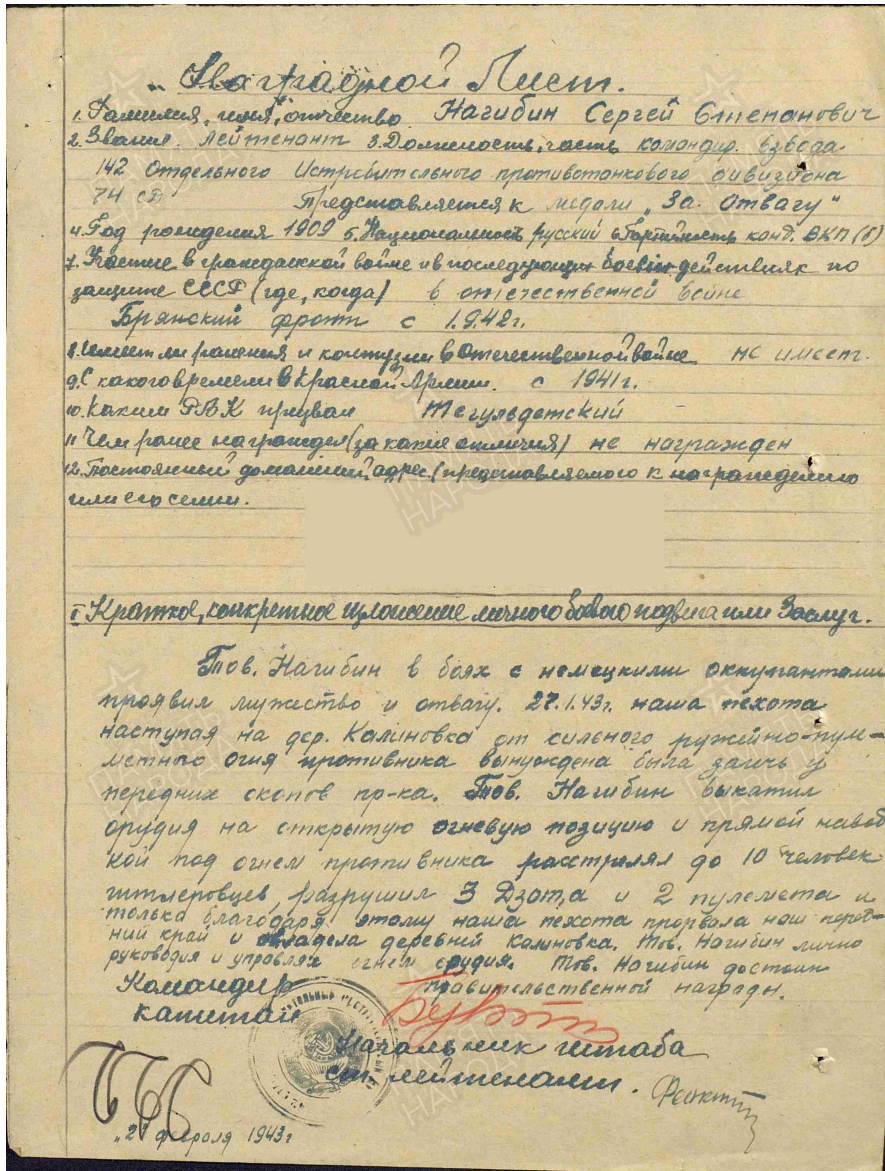 Наградной Лист.
1. Фамилия, имя, отчество Нагибин Сергей Степанович
2. Звание. Лейтенант 3. Должность, часть командир взвода
142 Отдельного Истребительного противотанкового дивизиона
74 сд Представляется к медали „За Отвагу"
4. Год рождения 1909 5. Национальность русский 6. Партийность канд. ВКП(б)
7. Участие в гражданской войне и в последующих боевых действиях по
защите СССР (где, когда) в отечественной войне
Брянский фронт с 1.9.42г.
8. Имеет ли ранения и контузии в Отечественной войне не имеет.
9. С какого времени в Красной Армии. с 1941г.
10. Каким РВК призван Тегульдетский
11 Чем ранее награжден (за какие отличия) не награжден
12. Постоянный домашний адрес (представляемого к награждению
или его семьи.
I Краткое, конкретное изложение личного боевого подвига или Заслуг.
Тов. Нагибин в боях с немецкими оккупантами
проявил мужество и отвагу. 27.1.43г. наша пехота
наступая на дер. Калиновка от сильного ружейно-пуле-
метного огня противника вынуждена была залечь у
передних окопов пр-ка. Тов. Нагибин выкатил
орудия на открытую огневую позицию и прямой навод
кой под огнем противника расстрелял до 10 человек
гитлеровцев, разрушил 3 Дзота и 2 пулемета и
только благодаря этому наша пехота прорвала наш перед-
ний край и овладела деревней Калиновка. Тов. Нагибин лично
руководил и управлял огнем орудия. Тов. Нагибин достоин
правительственной награды.
Командир
капитан
Начальник штаба
ст. лейтенант.
„2" февраля 1943г